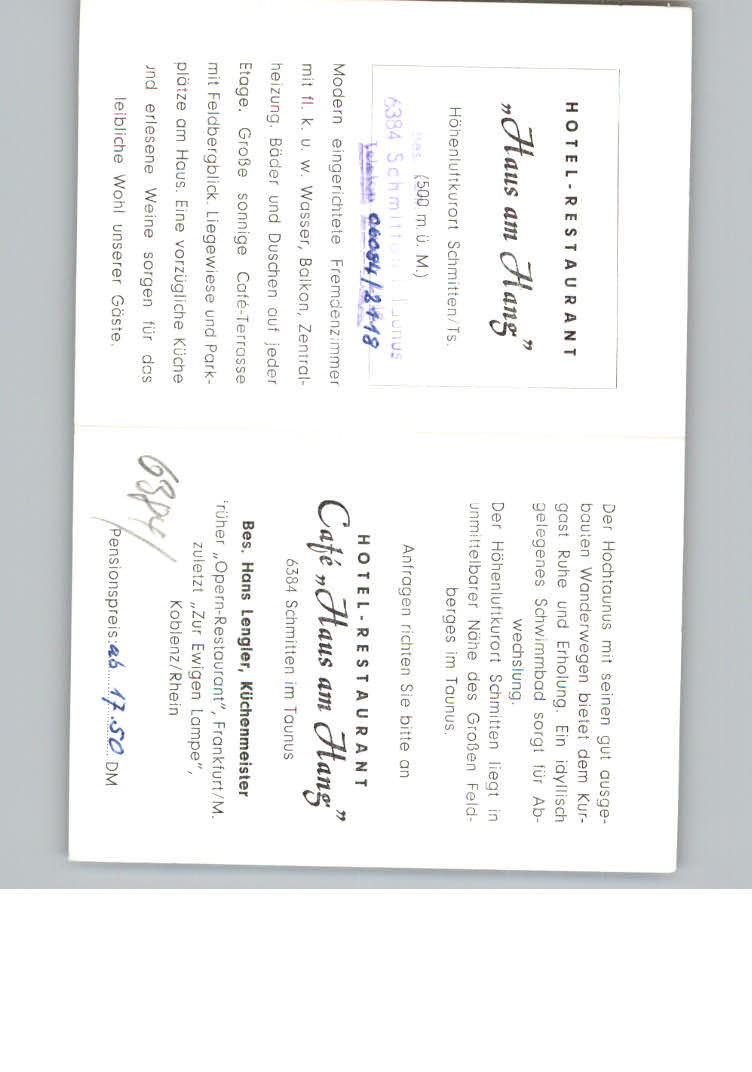 HOTEL-RESTAURANT
„Haus am Hang”
Höhenluftkurort Schmitten/Ts.
(500 m. ü. M.)
6384 Schmitten Taunus
06084/2718
Modern eingerichtete Fremdenzimmer
mit fl. k. u. w. Wasser, Balkon, Zentral-
heizung. Bäder und Duschen auf jeder
Etage. Große sonnige Café-Terrasse
mit Feldbergblick. Liegewiese und Park-
plätze am Haus. Eine vorzügliche Küche
und erlesene Weine sorgen für das
leibliche Wohl unserer Gäste.
Der Hochtaunus mit seinen gut ausge-
bauten Wanderwegen bietet dem Kur-
gast Ruhe und Erholung. Ein idyllisch
gelegenes Schwimmbad sorgt für Ab-
wechslung.
Der Höhenluftkurort Schmitten liegt in
unmittelbarer Nähe des Großen Feld-
berges im Taunus.
Anfragen richten Sie bitte an
HOTEL-RESTAURANT
Café „Haus am Hang”
6384 Schmitten im Taunus
Bes. Hans Lengler, Küchenmeister
früher „Opern-Restaurant”, Frankfurt/M.
zuletzt „Zur Ewigen Lampe”,
Koblenz/Rhein
Pensionspreis: ab 17.50 DM
6384/